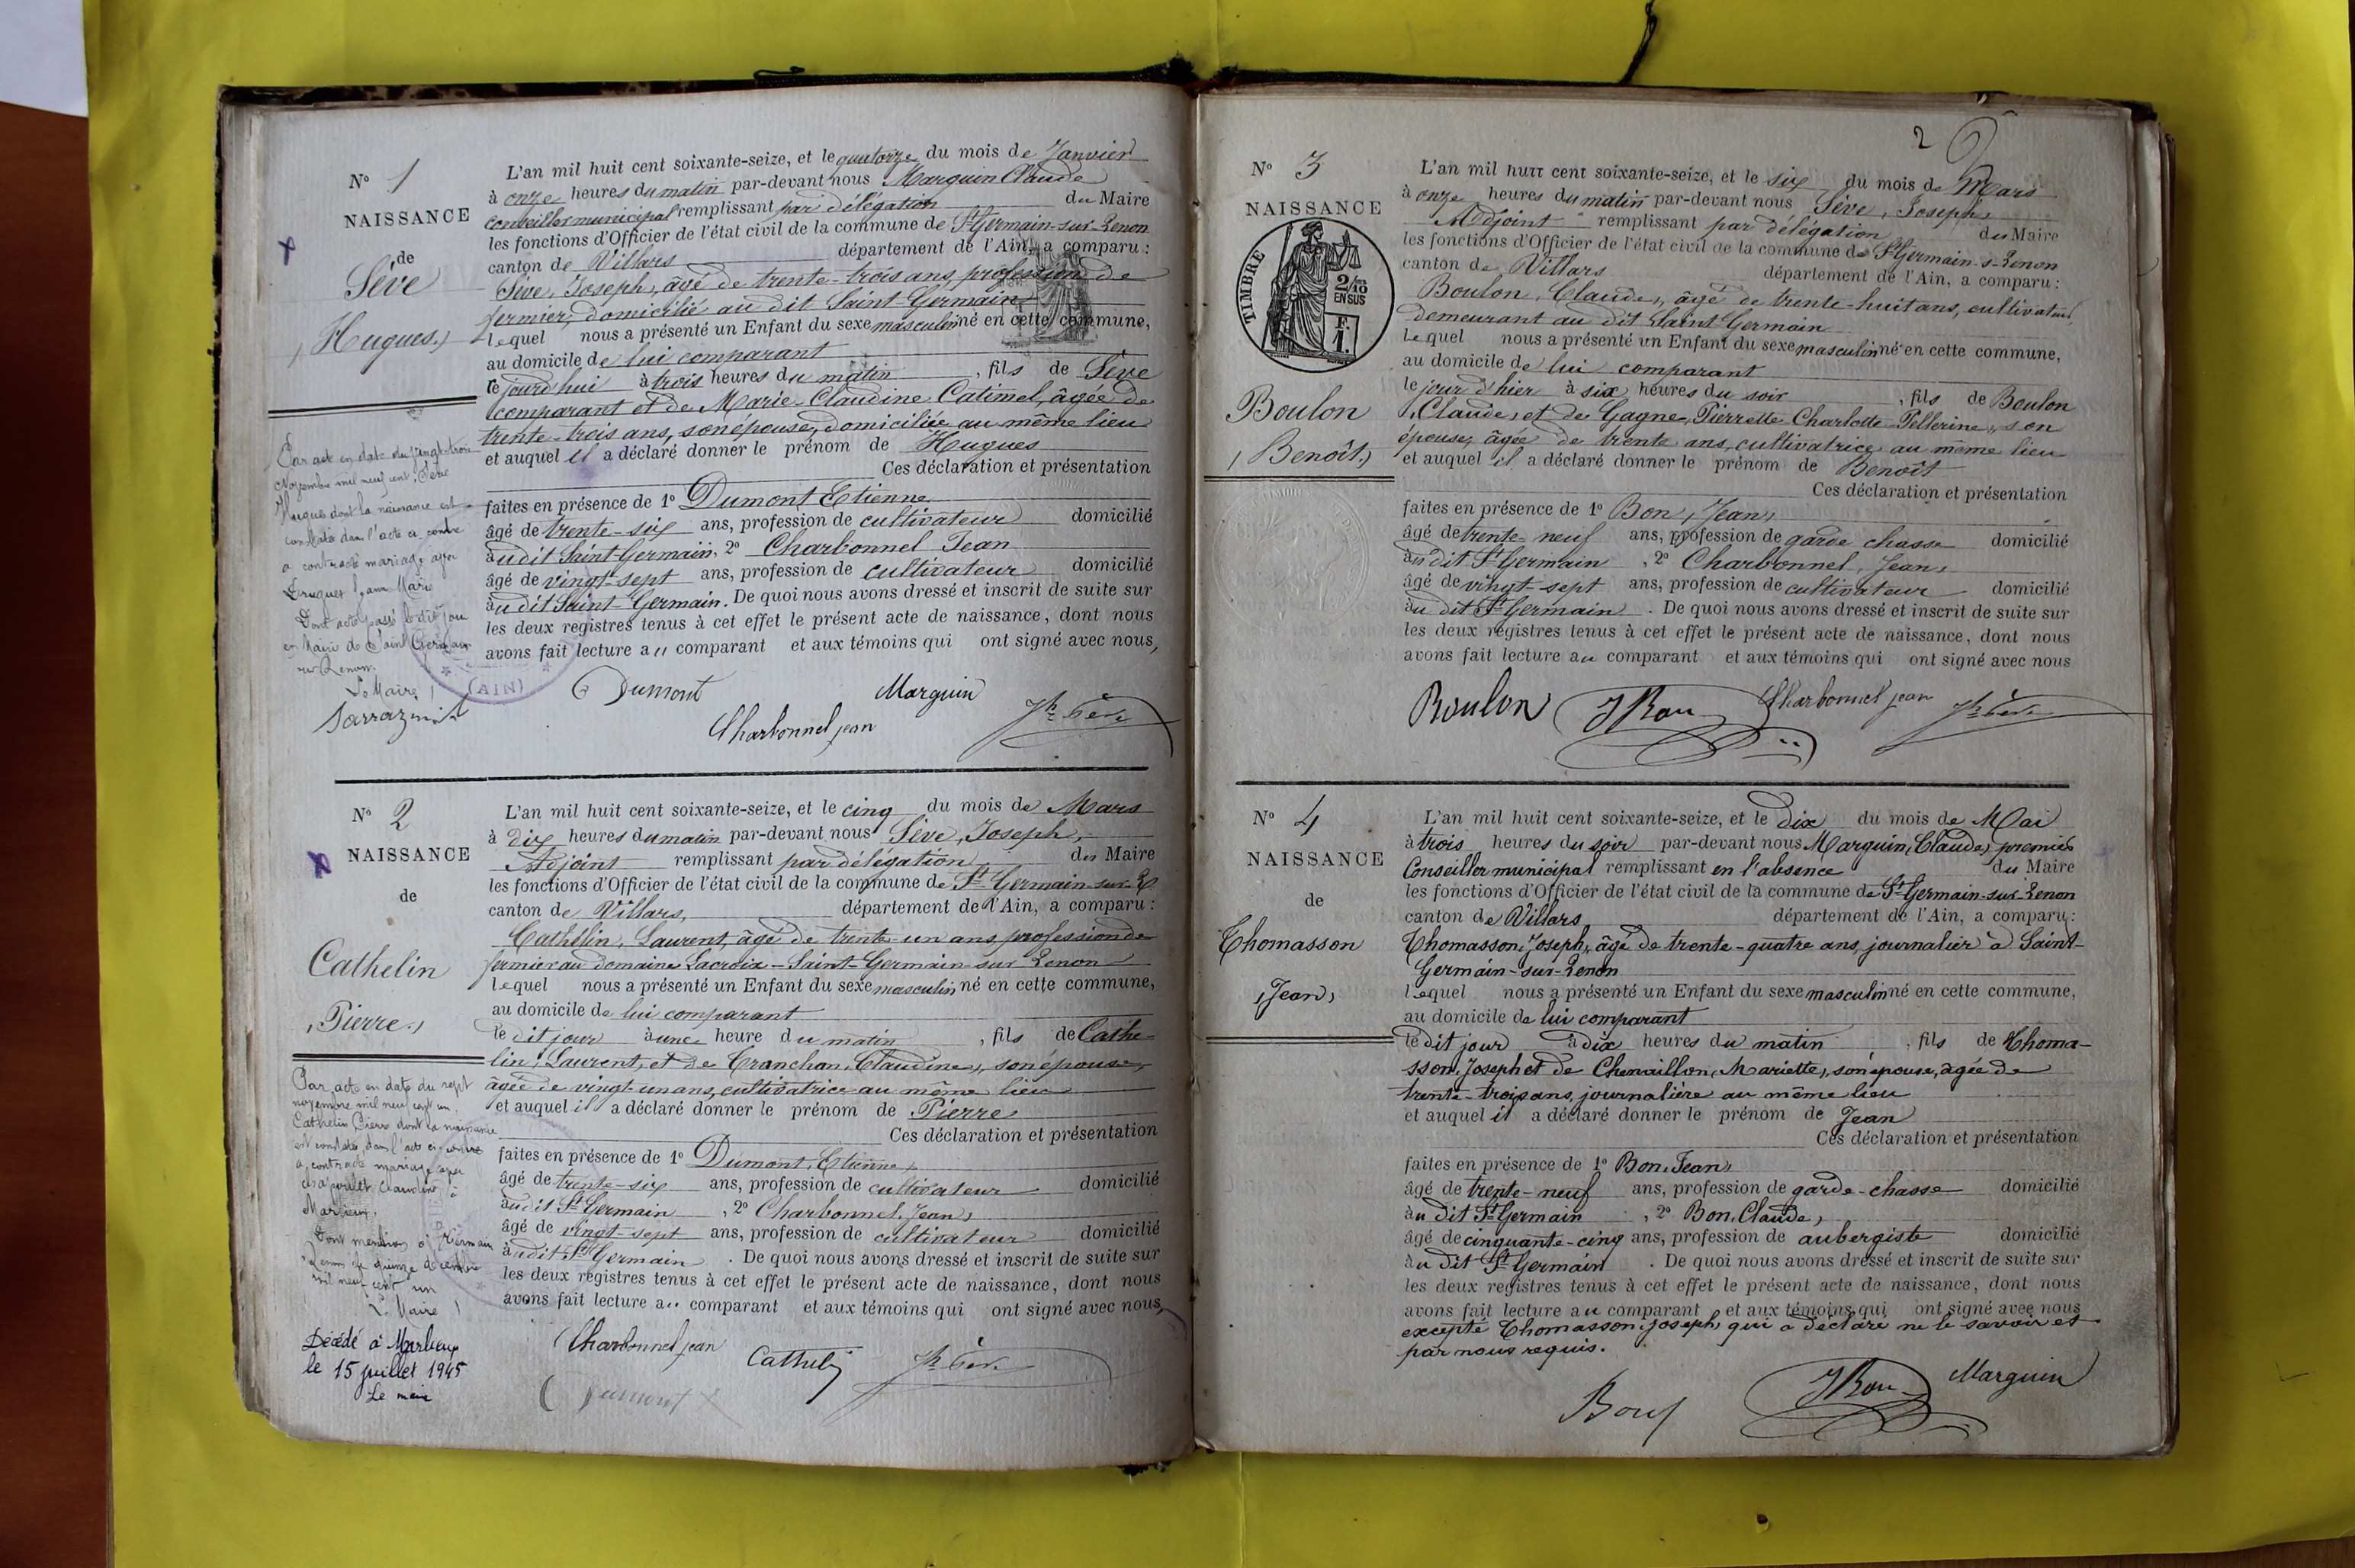 N° 1
NAISSANCE
de
Sève
(Hugues)
L'an mil huit cent soixante-seize, et le quatorze du mois de Janvier
à onze heures du matin par-devant nous Marguin Claude
conseiller municipal remplissant par délégation du Maire
les fonctions d'Officier de l'état civil de la commune de St Germain-sur-Renon
canton de Villars département de l'Ain, a comparu :
Sève, Joseph, âgé de trente-trois ans, profession de
fermier, domicilié au dit Saint Germain
lequel nous a présenté un Enfant du sexe masculin né en cette commune,
au domicile de lui comparant
ce jourd'hui à trois heures du matin, fils de Sève
comparant et de Marie-Claudine Catimel, âgée de
trente-trois ans, son épouse, domiciliée au même lieu
et auquel il a déclaré donner le prénom de Hugues
Ces déclaration et présentation
faites en présence de 1° Dumont Etienne
âgé de trente-six ans, profession de cultivateur domicilié
au dit Saint Germain, 2° Charbonnel Jean
âgé de vingt-sept ans, profession de cultivateur domicilié
au dit Saint-Germain. De quoi nous avons dressé et inscrit de suite sur
les deux registres tenus à cet effet le présent acte de naissance, dont nous
avons fait lecture au comparant et aux témoins qui ont signé avec nous,
Dumont Marguin
Charbonnel jean Jh Sève
Par acte en date du vingt-trois
Novembre mil neuf cent, Sève
Hugues dont la naissance est
constatée dans l'acte ci-contre
a contracté mariage avec
Jeanne Marie
Dont acte passé le dit jour
en Mairie de Saint Germain
sur Renon.
Le Maire
Sarrazin
(AIN)
N° 2
NAISSANCE
de
Cathelin
(Pierre)
L'an mil huit cent soixante-seize, et le cinq du mois de Mars
à dix heures du matin par-devant nous Sève, Joseph,
Adjoint remplissant par délégation du Maire
les fonctions d'Officier de l'état civil de la commune de St Germain-sur-R
canton de Villars, département de l'Ain, a comparu :
Cathelin, Laurent, âgé de trente-un ans, profession de
fermier au domaine Lacroix-Saint-Germain-sur Renon
lequel nous a présenté un Enfant du sexe masculin né en cette commune,
au domicile de lui comparant
le dit jour à une heure du matin, fils de Cathe-
lin, Laurent, et de Cranchan, Claudine, son épouse,
âgée de vingt-un ans, cultivatrice au même lieu
et auquel il a déclaré donner le prénom de Pierre
Ces déclaration et présentation
faites en présence de 1° Dumont, Etienne,
âgé de trente-six ans, profession de cultivateur domicilié
au dit St Germain, 2° Charbonnel, Jean,
âgé de vingt-sept ans, profession de cultivateur domicilié
au dit St Germain. De quoi nous avons dressé et inscrit de suite sur
les deux registres tenus à cet effet le présent acte de naissance, dont nous
avons fait lecture au comparant et aux témoins qui ont signé avec nous,
Charbonnel jean Cathelin Jh Sève
Dumont
Par acte en date du sept
novembre mil neuf cent un
Cathelin Pierre dont la naissance
est constatée dans l'acte ci-contre
a contracté mariage avec
Claudine à
Marlieux,
Dont mention à St Germain
s/Renon le quinze décembre
mil neuf cent un
Le Maire
Décédé à Marlieux
le 15 juillet 1945
Le maire
2
N° 3
NAISSANCE
TIMBRE
2/10
EN SUS
F.
1.
Boulon
(Benoît)
L'an mil huit cent soixante-seize, et le six du mois de Mars
à onze heures du matin par-devant nous Sève, Joseph,
Adjoint remplissant par délégation du Maire
les fonctions d'Officier de l'état civil de la commune de St Germain-s-Renon
canton de Villars département de l'Ain, a comparu :
Boulon, Claude, âgé de trente-huit ans, cultivateur,
demeurant au dit Saint Germain
lequel nous a présenté un Enfant du sexe masculin né en cette commune,
au domicile de lui comparant
le jour d'hier à six heures du soir, fils de Boulon
Claude, et de Gagne, Pierrette Charlotte Pellerine, son
épouse, âgée de trente ans, cultivatrice au même lieu
et auquel il a déclaré donner le prénom de Benoît
Ces déclaration et présentation
faites en présence de 1° Bon, Jean,
âgé de trente-neuf ans, profession de garde chasse domicilié
au dit St Germain, 2° Charbonnel, Jean,
âgé de vingt-sept ans, profession de cultivateur domicilié
au dit St Germain. De quoi nous avons dressé et inscrit de suite sur
les deux registres tenus à cet effet le présent acte de naissance, dont nous
avons fait lecture au comparant et aux témoins qui ont signé avec nous
Boulon J Bon Charbonnel jean Jh Sève
N° 4
NAISSANCE
de
Thomasson
(Jean)
L'an mil huit cent soixante-seize, et le Dix du mois de Mai
à trois heures du soir par-devant nous Marguin, Claude, premier
Conseiller municipal remplissant en l'absence du Maire
les fonctions d'Officier de l'état civil de la commune de St Germain-sur-Renon
canton de Villars département de l'Ain, a comparu :
Thomasson, Joseph, âgé de trente-quatre ans, journalier à Saint-
Germain-sur-Renon
lequel nous a présenté un Enfant du sexe masculin né en cette commune,
au domicile de lui comparant
le dit jour à dix heures du matin, fils de Thoma-
sson, Joseph et de Chenaillon, Mariette, son épouse, âgée de
trente-trois ans, journalière au même lieu
et auquel il a déclaré donner le prénom de Jean
Ces déclaration et présentation
faites en présence de 1° Bon, Jean,
âgé de trente-neuf ans, profession de garde-chasse domicilié
au dit St Germain, 2° Bon, Claude,
âgé de cinquante-cinq ans, profession de aubergiste domicilié
au dit St Germain. De quoi nous avons dressé et inscrit de suite sur
les deux registres tenus à cet effet le présent acte de naissance, dont nous
avons fait lecture au comparant et aux témoins qui ont signé avec nous
excepté Thomasson, joseph, qui a déclaré ne le savoir et
par nous requis.
Bon J Bon Marguin